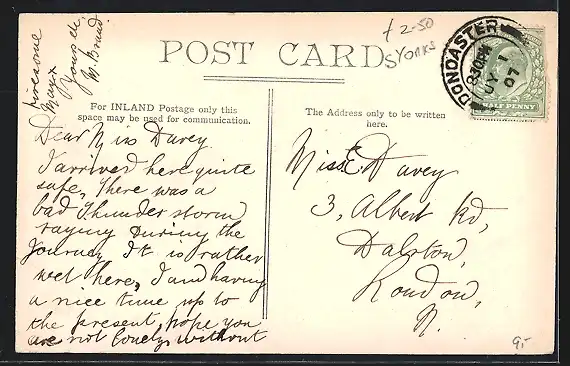 £2-50
S YORKS
POST CARD
DONCASTER
8 30 PM
JY 1
07
HALF PENNY
For INLAND Postage only this
space may be used for communication.
The Address only to be written
here.
Dear Miss Davey
I arrived here quite
safe, There was a
bad Thunder storm
raging During the
Journey It is rather
wet here, I am having
a nice time up to
the present, hope you
are not lonely, without
yours etc
Miss E. Davey
3, Albert Rd,
Dalston,
London,
N.
9,-